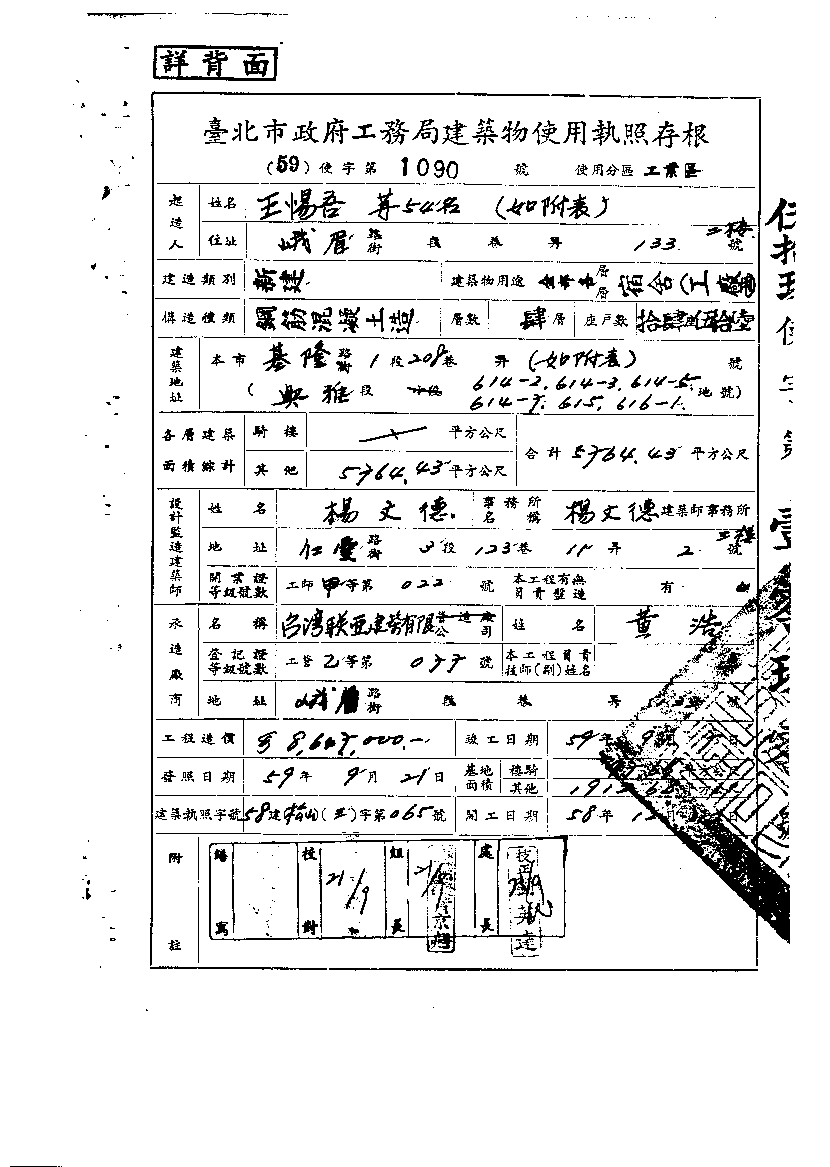 詳背面
臺北市政府工務局建築物使用執照存根
(59)使字第1090號 使用分區 工業區
起造人 姓名 王惕吾 等54名 (如附表)
住址 峨眉 路街 段 巷 弄 133 號 二樓
建造類別 新建 建築物用途 層層 宿舍(工
構造種類 鋼筋混凝土造 層數 肆層 座戶數
建築地址 本市 基隆 路街 1段208巷 弄 (如附表) 號
(興雅段 小段 614-2, 614-3, 614-5, 614-7, 615, 616-1. 地號)
各層建築面積綜計 騎樓 平方公尺 合計 5764.43 平方公尺
其他 5764.43 平方公尺
設計監造建築師 姓名 楊文德 事務所名稱 楊文德 建築師事務所
地址 仁愛 路街 3段 123巷 11弄 2號 二樓
開業證等級號數 工師甲等第 022 號 本工程有無負責監造 有
承造廠商 名稱 台灣联亚建築有限公司 姓名 黃浩
登記證等級號數 工營乙等第 077 號 本工程負責技師(副)姓名
地址 峨眉 路街 段 巷 弄 號
工程造價 8,647,000.- 竣工日期 59年 9 日
發照日期 59年 9月 21日 基地面積 騎樓 平方公尺
其他
建築執照字號 58建松山(三)字第065號 開工日期 58年
附註
繕寫 校對 21/9 組長 21/9 處長